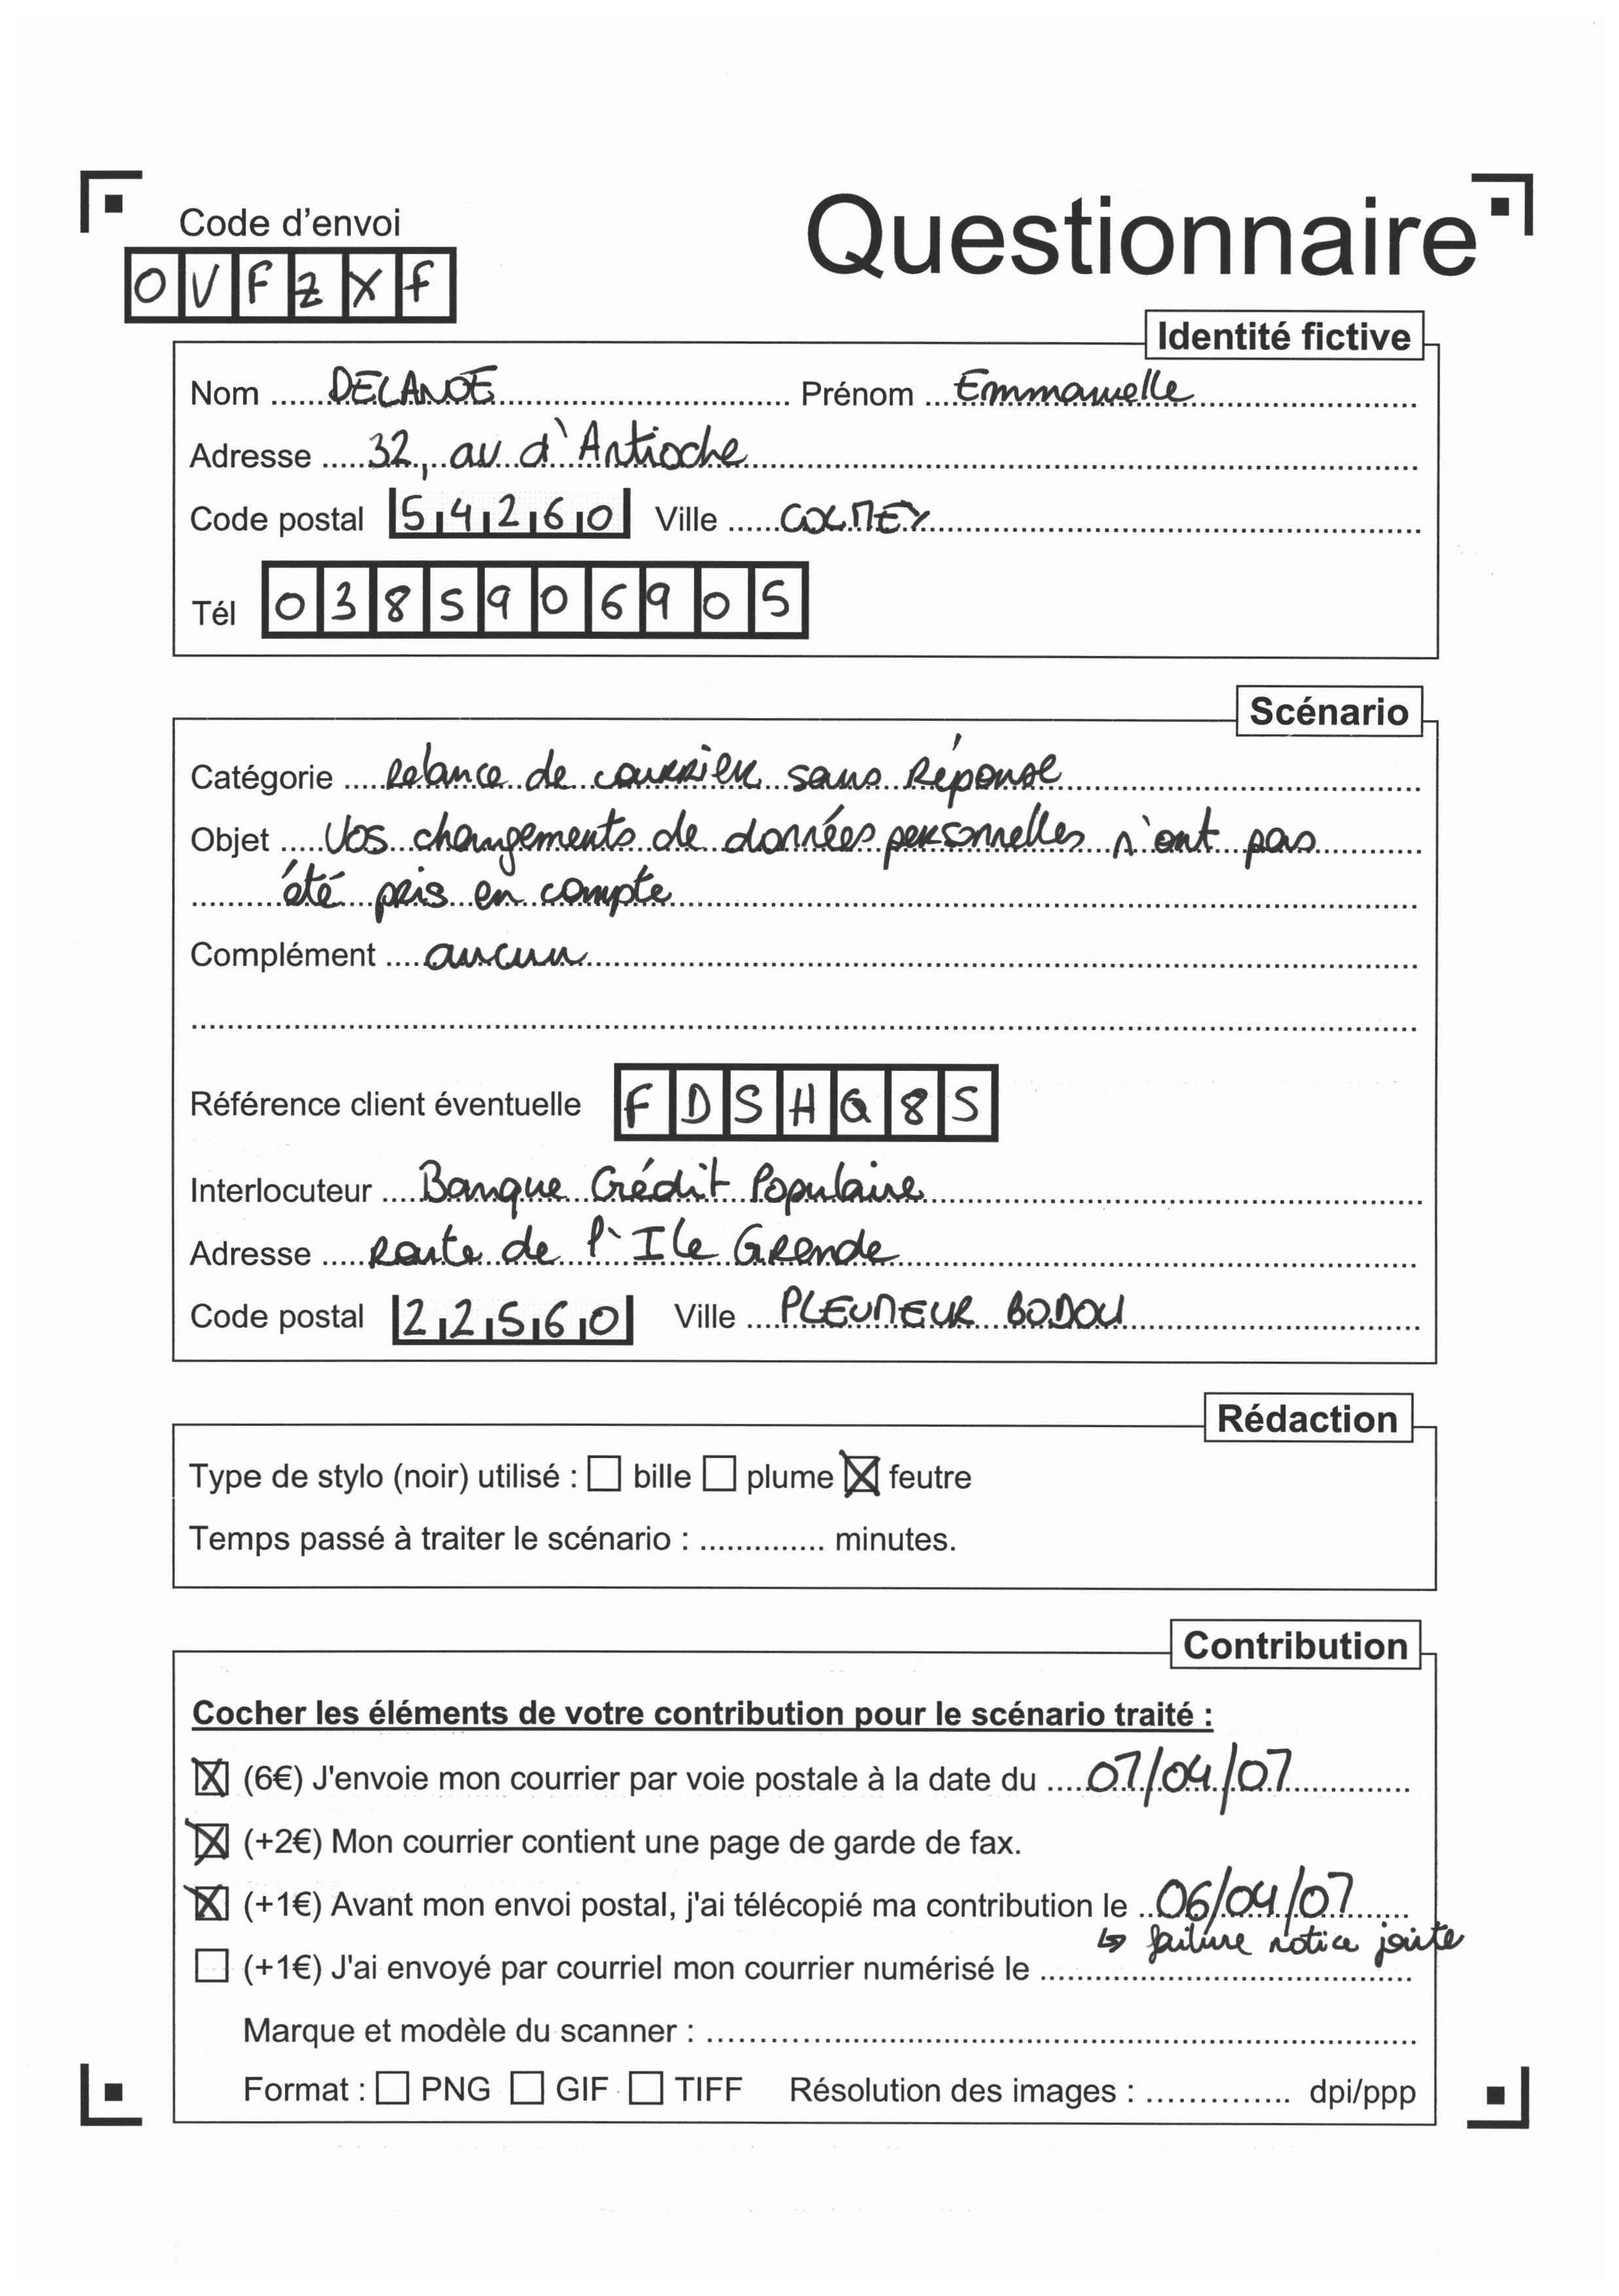 Code d'envoi
Questionnaire
OVFZXF
Identité fictive
Nom DELANOE Prénom Emmanuelle
Adresse 32, av d'Antioche
Code postal 54260 Ville COLMEY
Tél 0385906905
Scénario
Catégorie Relance de courrier sans Réponse
Objet Vos changements de données personnelles n'ont pas
été pris en compte
Complément aucun
Référence client éventuelle FDSHQ85
Interlocuteur Banque Crédit Populaire
Adresse Route de l'Ile Grande
Code postal 22560 Ville PLEUMEUR BODOU
Rédaction
Type de stylo (noir) utilisé : ☐ bille ☐ plume ☒ feutre
Temps passé à traiter le scénario : .............. minutes.
Contribution
Cocher les éléments de votre contribution pour le scénario traité :
☒ (6€) J'envoie mon courrier par voie postale à la date du 07/04/07
☒ (+2€) Mon courrier contient une page de garde de fax.
☒ (+1€) Avant mon envoi postal, j'ai télécopié ma contribution le 06/04/07
↳ failure notice jointe
☐ (+1€) J'ai envoyé par courriel mon courrier numérisé le
Marque et modèle du scanner :
Format : ☐ PNG ☐ GIF ☐ TIFF Résolution des images : .............. dpi/ppp